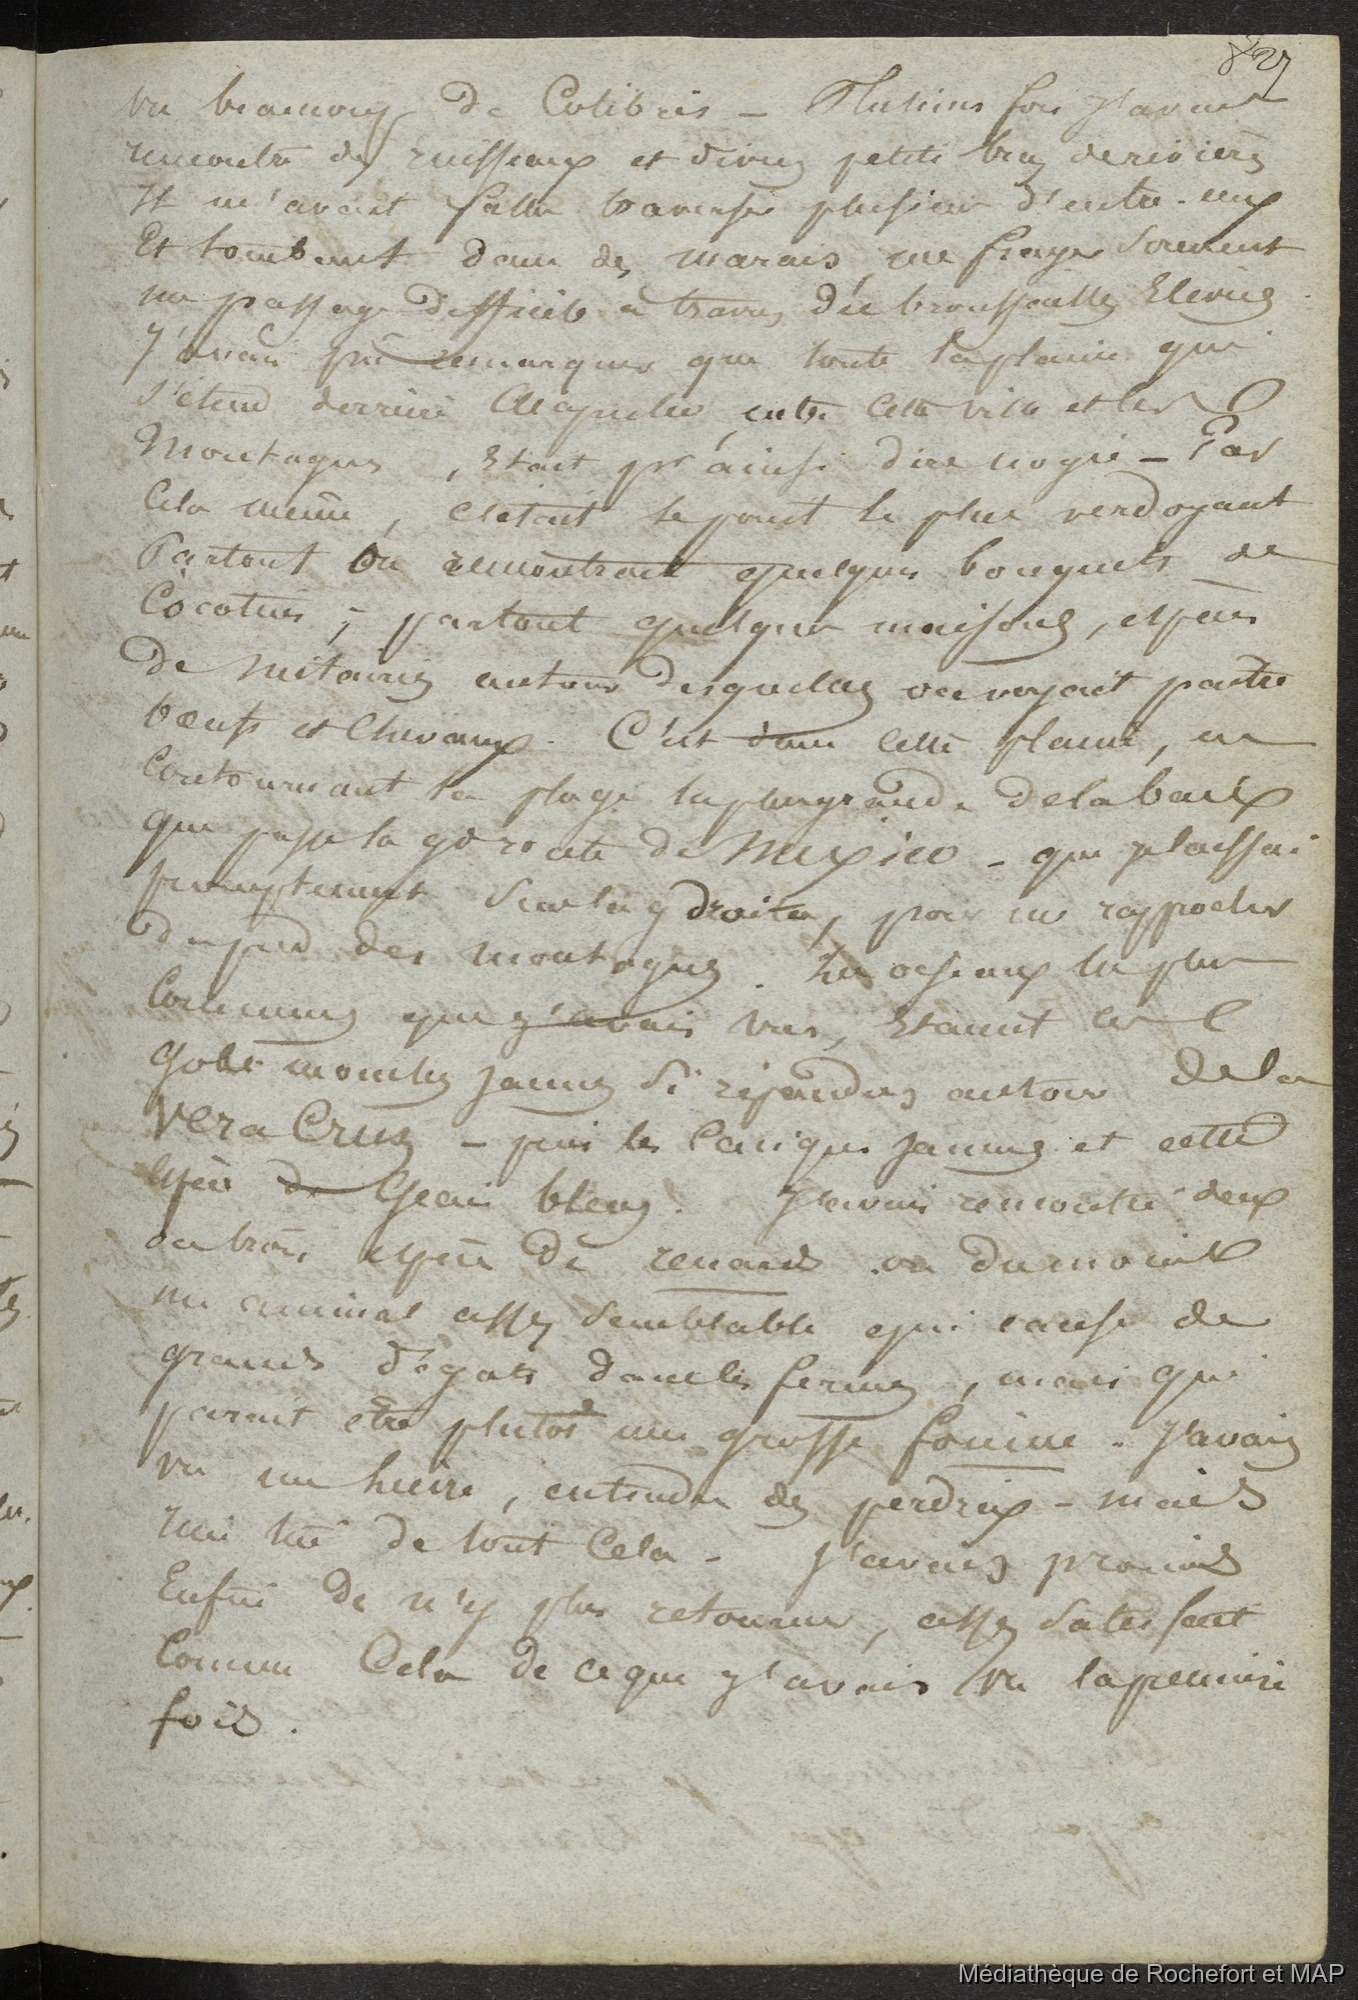 827
vu beaucoup de Colibris – Plusieurs fois j'avais
rencontré des ruisseaux et divers petits bras de rivières
Il m'avait fallu traverser plusieurs d'entre-eux
Et tombant dans des marais me frayer souvent
un passage difficile à travers des broussailles Elevées
J'avais pu remarquer que toute la plaine qui
s'étend derrière Acapulco, entre cette ville et les
Montagnes, Etait pr ainsi dire noyée – Par
Cela même, c'était le point le plus verdoyant
Partout on rencontrait quelques bouquets de
Cocotiers ; partout quelques maisons, espèces
de métairies autour desquelles on voyait paitre
bœufs et Chevaux. C'est dans cette plaine, en
Contournant la plage la plus grande de la baie
que passe la gde route de Mexico – que je laissai
promptement sur la droite, pour me rapprocher
du pied des montagnes. Les oiseaux les plus
Communs que j'avais vus, Etaient les
Gobe mouches jaunes si répandus autour de la
Vera Cruz – puis les Caciques jaunes et cette
espèce de Geais bleus. J'avais rencontré deux
ou trois espèces de renards ou du moins
un animal assez semblable qui cause de
grands dégats dans les fermes, mais qui
parait être plutôt une grosse fouine. J'avais
vu un lièvre, entendu des perdrix – mais
rien tué de tout Cela – J'avais promis
Enfin de n'y plus retourner, assez satisfait
Comme Cela de ce que j'avais vu la première
fois.
Médiathèque de Rochefort et MAP